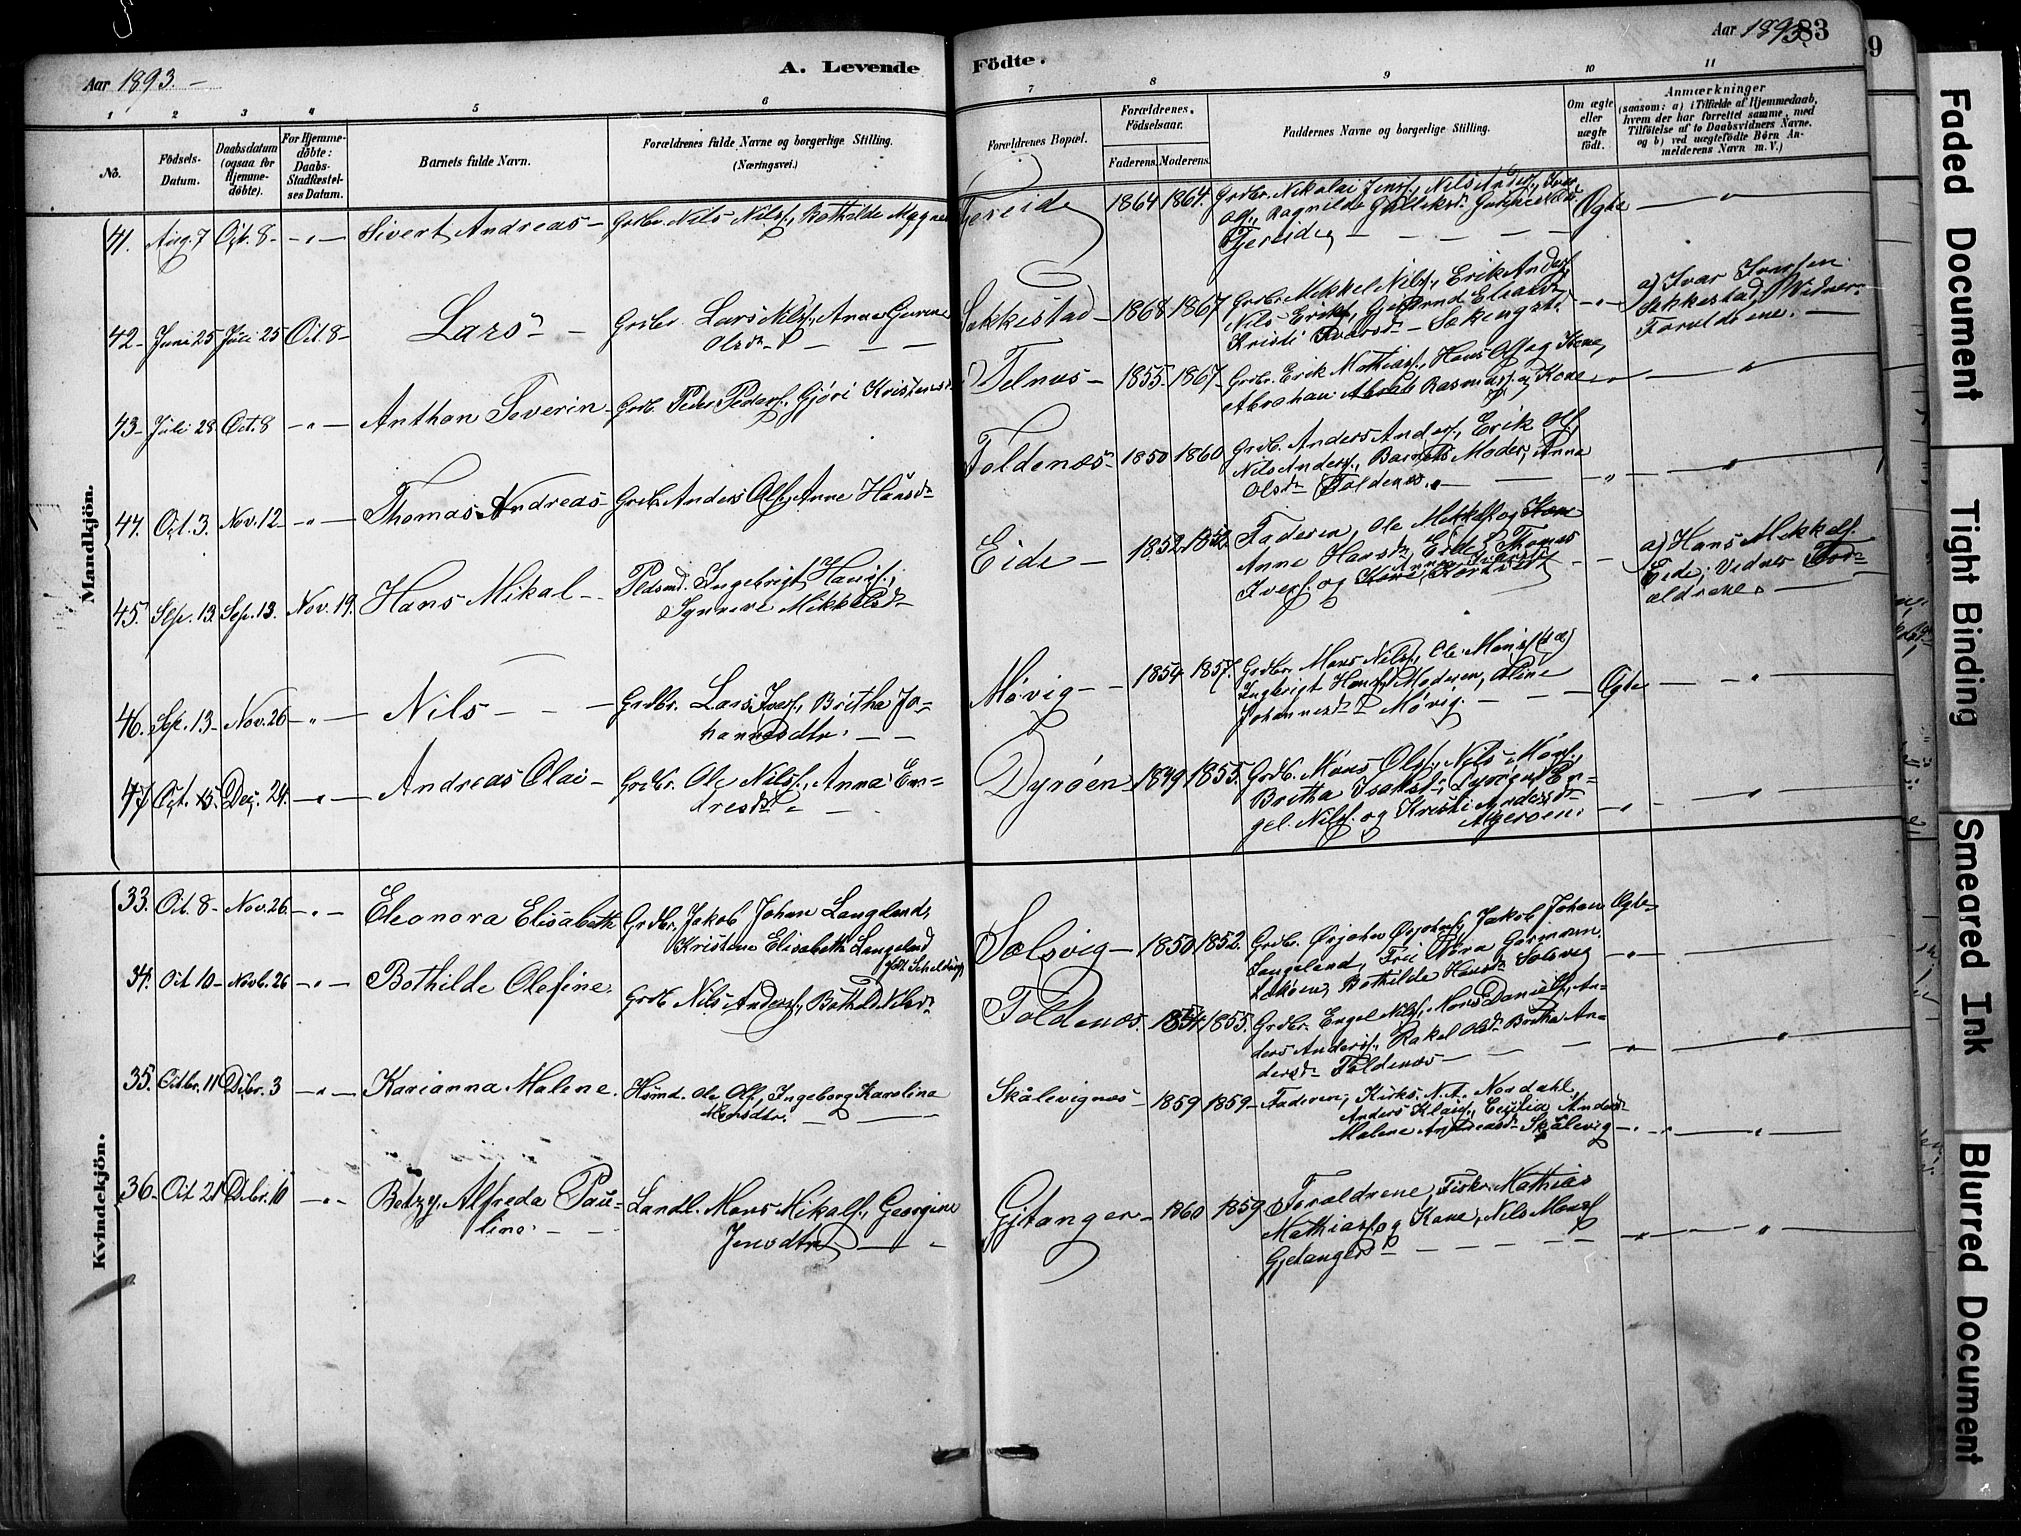 Aar 1893.
A. Levende
Födte.
Aar 1893.
83
1 2 3 4 5 6 7 8 9 10 11
No.
Födsels-Datum.
Daabsdatum (ogsaa for Hjemme-döbte).
For Hjemme-döbte: Daabs-Stadfæstel-ses Datum.
Barnets fulde Navn.
Forældrenes fulde Navne og borgerlige Stilling.
(Næringsvei.)
Forældrenes Bopæl.
Forældrenes Födselsaar.
Faderens. Moderens.
Faddernes Navne og borgerlige Stilling.
Om ægte eller uægte födt.
Anmærkninger
(saasom: a) i Tilfælde af Hjemmedaab,
hvem der har forrettet samme, med
Tilföielse af to Daabsvidners Navne.
og b) ved uægtefödte Børn An-
melderens Navn m. V.)
Mandkjön.
41. Aug. 7 Oct. 8 - " - Sivert Andreas - Grdbr. Nils Nilsf., Bothilde Magne
Tjereide 1864 1864. Grdbr. Nikolai Jensf., Nils Andersf., Ivar
Ragnilde
Tjereide
Ægte - " -
42 - Juni 25 Juli 25 Oct. 8 - Lars - Grdbr. Lars Nilsf., Anne
Olsdtr
Sekkestad - 1868 1867 Grdbr. Mikkel Nilsf., Erik Andersf.,
Nils Eriksf.,
Kristi Ivarsdtr -
- " - a) Ivar Iversen
Sekkestad, Vidner:
Forældrene. -
43 - Juli 28 Oct. 8 - " - Anthon Severin - Grdb. Peder Pedersf., Gjøri
Telnæs - 1855. 1867 - Grdbr. Erik Mathiasf., Hans Olsf. og Kone,
Abraham Rasmusf. og Kone - " -
44. Oct. 3. Nov. 12 - " - Thomas Andreas - Grdb. Anders Olsf., Anne Hansdtr
Foldenæs - 1850 1860 Grdb. Anders Andersf., Erik Olsf.,
Nils Andersf., Barnets Moder, Anna
Olsdtr Foldenæs. - " -
45. Sep. 13. Sep. 13. Nov. 19. Hans Mikal - Pladsmd. Ingebrigt Hansf.,
Synneve Mikkelsdtr
Eide - 1852 Faderen, Ole Mikkelsf. og
Anne Hansdtr Eide, Thomas
Iversf. og Kone
- - a) Hans Mikkelsf.
Eide; Vidner For-
ældrene. -
46. Sep. 13 - Nov. 26 - " - Nils - - - Grdbr. Lars Iversf., Britha Jo-
hannesdtr. - -
Møvig - - 1854 1857. Grdbr. Mons Nilsf., Ole Monsf.
Ingbrigt Hansf., Moderen, Oline
Johannesdtr Møvig. - - Ægte - " -
47 Oct. 15. Dec. 24. - " - Andreas Olai - Grdbr. Ole Nilsf., Anna En-
dresdtr -
Dyröen 1849 1855. Grdb. Mons Olsf., Nils Monsf.,
Britha Isaksdtr, En-
gel. Nilsf. og Kristi Andersdtr
Algeröen. - " -
Kvindekjön.
33. Oct. 8 - Nov. 26. - " - Eleonora Elisabeth Grdbr. Jakob Johan Langeland,
Kristene Elisabeth Langeland
født
Solsvig - 1850 1852. Grdb. Jakob Johan
Langeland,
Bothilde Hansdtr Solsvig
Ægte - " -
34. Oct 10 - Novb. 26 - " - Bothilde Olefine. Grdb. Nils Andersf., Bothilde Nilsdtr
Foldenæs. 1854. 1855. Grdbr. Engel Nilsf., Mons Danielsf., An-
ders Andersf., Rakel Olsdtr Britha An-
dersdtr Foldenæs - - " -
35. Octbr. 11 Dcbr. 3 - " - Karianna Malene. Husmd. Ole Olsf., Ingeborg Karolina
Monsdtr. - -
Skålevignæs - 1859 1859 - Faderen, Kirks. N. A. Nordahl,
Anders Klausf., Cecilia Andersdtr
Malene Andreasdtr Skålevig - " -
36 - Oct 21 Dcbr. 10 - " - Betzy Alfreda Pau-
line. - - Landl. Mons Mikalsf., Georgine
Jensdtr -
Gjetanger - 1860 1859 Forældrene, Fisker Mathias
Mathiasf. og Kone, Nils Monsf.
Gjetanger - - - " -
Faded Document
Tight Binding
Smeared Ink
Blurred Document